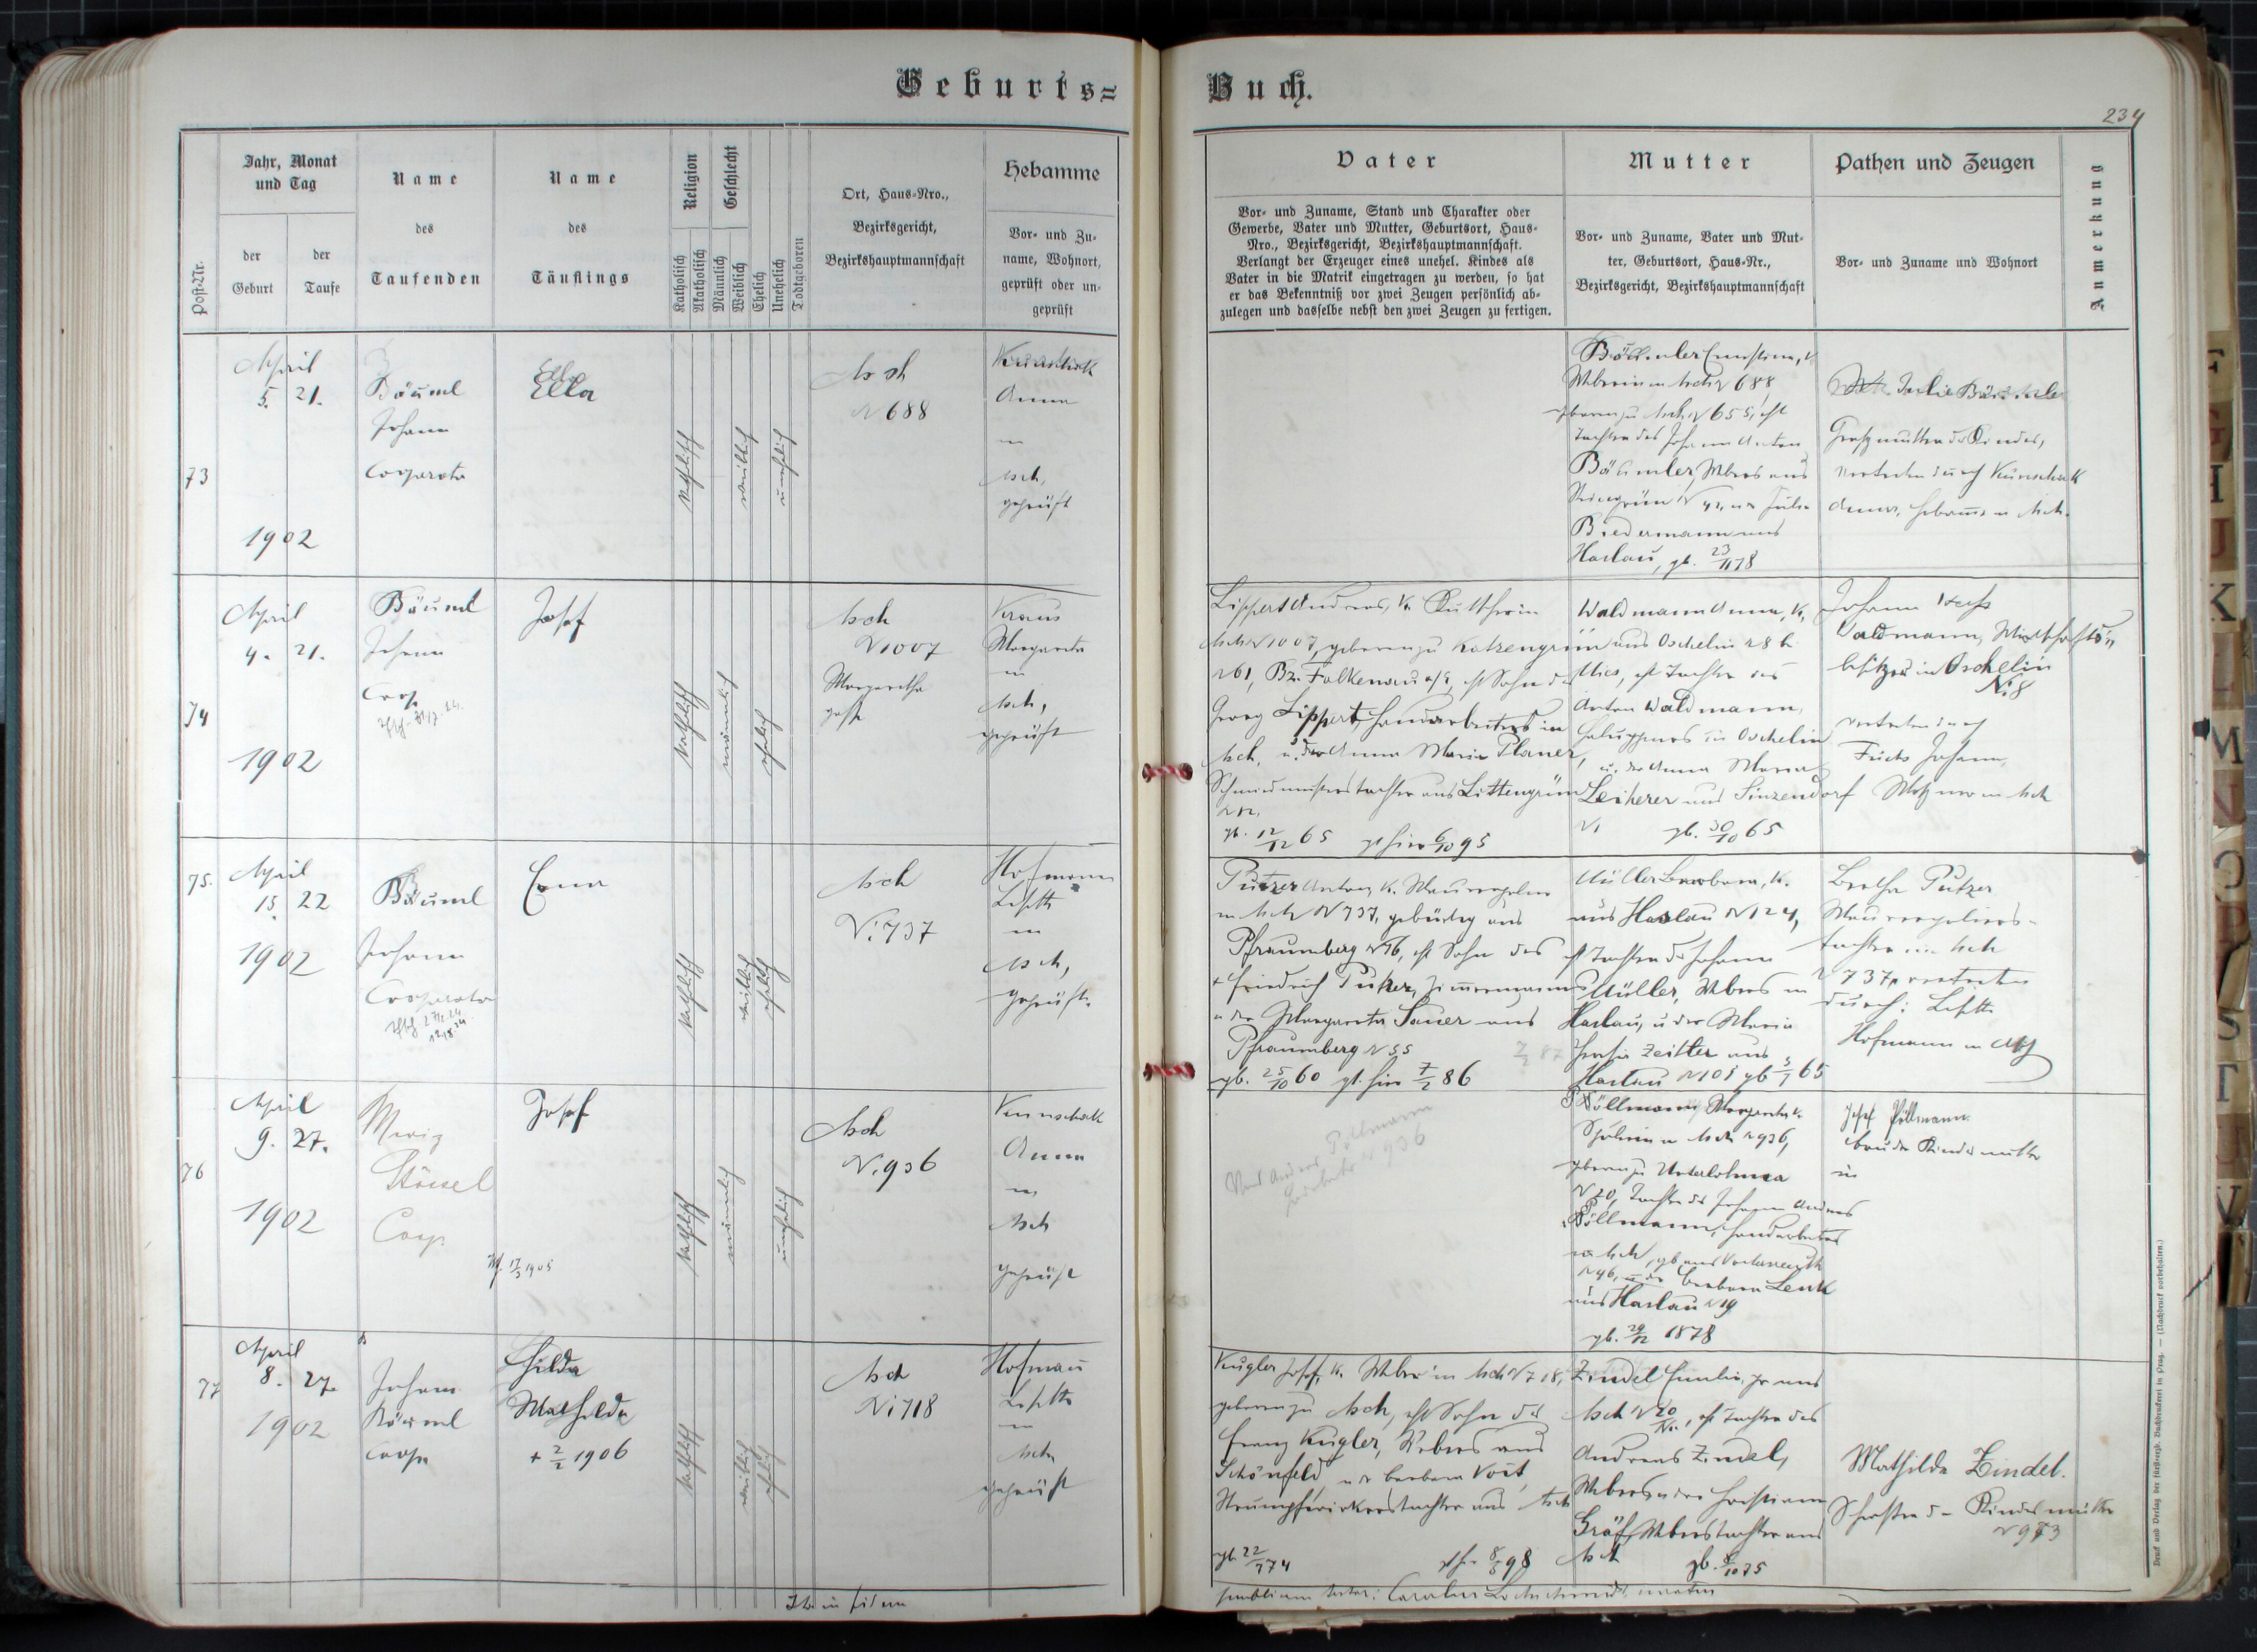 Geburts=
Buch.
234
Post-Nr.
Jahr, Monat
und Tag
der
Geburt
der
Taufe
Name
des
Taufenden
Name
des
Täuflings
Religion
Katholisch
Akatholisch
Geschlecht
Männlich
Weiblich
Ehelich
Unehelich
Todtgeboren
Ort, Haus-Nro.,
Bezirksgericht,
Bezirkshauptmannschaft
Hebamme
Vor- und Zu-
name, Wohnort,
geprüft oder un-
geprüft
Vater
Vor- und Zuname, Stand und Charakter oder
Gewerbe, Vater und Mutter, Geburtsort, Haus-
Nro., Bezirksgericht, Bezirkshauptmannschaft.
Verlangt der Erzeuger eines unehel. Kindes als
Vater in die Matrik eingetragen zu werden, so hat
er das Bekenntniß vor zwei Zeugen persönlich ab-
zulegen und dasselbe nebst den zwei Zeugen zu fertigen.
Mutter
Vor- und Zuname, Vater und Mut-
ter, Geburtsort, Haus-Nr.,
Bezirksgericht, Bezirkshauptmannschaft
Pathen und Zeugen
Vor- und Zuname und Wohnort
Anmerkung
73
April
5. 21.
1902
Bäuml
Johann
Cooperator
Ella
katholisch
weiblich
unehelich
Asch
N 688
Künschak
Anna
in
Asch,
geprüft
Bäumler Ernstine, k.
Weberin in Asch N 688,
geboren zu Asch N 655, ist
Tochter des Johann Anton
Bäumler, Webers aus
Steingrün N 42, und Julie
Biedermann aus
Haslau, gb. 23/11 78
Julie Bäumler
Großmutter des Kindes,
vertreten durch Künschak
Anna, Hebamme in Asch.
74
April
4. 21.
1902
Bäuml
Johann
Coop.
Josef
katholisch
männlich
ehelich
Asch
N 1007
Margaretha
gasse
Kraus
Margareta
in
Asch,
geprüft
Lippert Andreas, k. Kutscher in
Asch N 1007, geboren zu Katzengrün
N 61, Bz. Falkenau a/E, ist Sohn des
Georg Lippert, Handarbeiters in
Asch, u. der Anna Maria Planer,
Schmiedmeisterstochter aus Littengrün
N 12.
gb. 12/12 65 gt. hier 6/10 95
Waldmann Anna, k.,
aus Oschelin N 8 b.
Mies, ist Tochter des
Anton Waldmann,
Chaluppners in Oschelin
u. der Anna Maria
Leiherer aus Sinzendorf
N 1 gb. 30/10 65
Johann
Waldmann, Wirthschafts-
besitzer in Oschelin
N. 8
vertreten durch
Fuchs Johann,
Metzner in Asch
75.
April
15. 22
1902
Bäuml
Johann
Cooperator
Erna
katholisch
weiblich
ehelich
Asch
N. 737
Hofmann
Lisette
in
Asch,
geprüft.
Putzer Anton, k. Maurerpolier
in Asch N 737, gebürtig aus
Pfraumberg N 76, ist Sohn des
+ Friedrich Putzer, Zimmermanns
u. der Margareta Sauer aus
Pfraumberg N 55
gb. 25/10 60 gt. hier 7/2 86
Müller Barbara, k.
aus Haslau N 124,
ist Tochter des Johann
Müller, Webers in
Haslau, u. der Maria
Zeitler aus
Haslau N 101 gb 5/1 65
Bertha Putzer
Maurerpoliers-
tochter in Asch
N 737, vertreten
durch: Lisette
Hofmann in Asch
76
April
9. 27.
1902
Stöisel
Coop.
Josef
katholisch
männlich
unehelich
Asch
N. 936
Künschak
Anna
in
Asch
geprüft
Pöllmann
N 936
Pöllmann Margareta k.
Spulerin in Asch N 936,
geboren zu Unterlohma
N 20, Tochter des Johann Andreas
Pöllmann, Handarbeiters
in Asch,
N 46, u. der Barbara Lenk
aus Haslau N 19
gb. 29/12 1878
Josef Pöllmann
Bruder der Kindesmutter
in
77
April
8. 27.
1902
Johann
Bäuml
Coop.
Hilda
Mathilda
+ 2/2 1906
katholisch
weiblich
ehelich
Asch
N. 718
Hofmann
Lisette
in
Asch
geprüft
Kugler Josef, k. Weber in Asch N 718,
geboren zu Asch, ist Sohn des
Franz Kugler, Webers aus
Schönfeld, u. der Barbara Voit,
Strumpfwirkerstochter aus Asch
gb 22/7 74
8/5 98
Zindel Emilie, pr aus
Asch N 20, ist Tochter des
Andreas Zindel,
Webers, u. der Christiane
Gräf, Weberstochter aus
Asch gb. 8/10 75
Mathilda Zindel.
Schwester der Kindesmutter
N 973
Druck und Verlag der fürsterzb. Buchdruckerei in Prag. — (Nachdruck vorbehalten.)